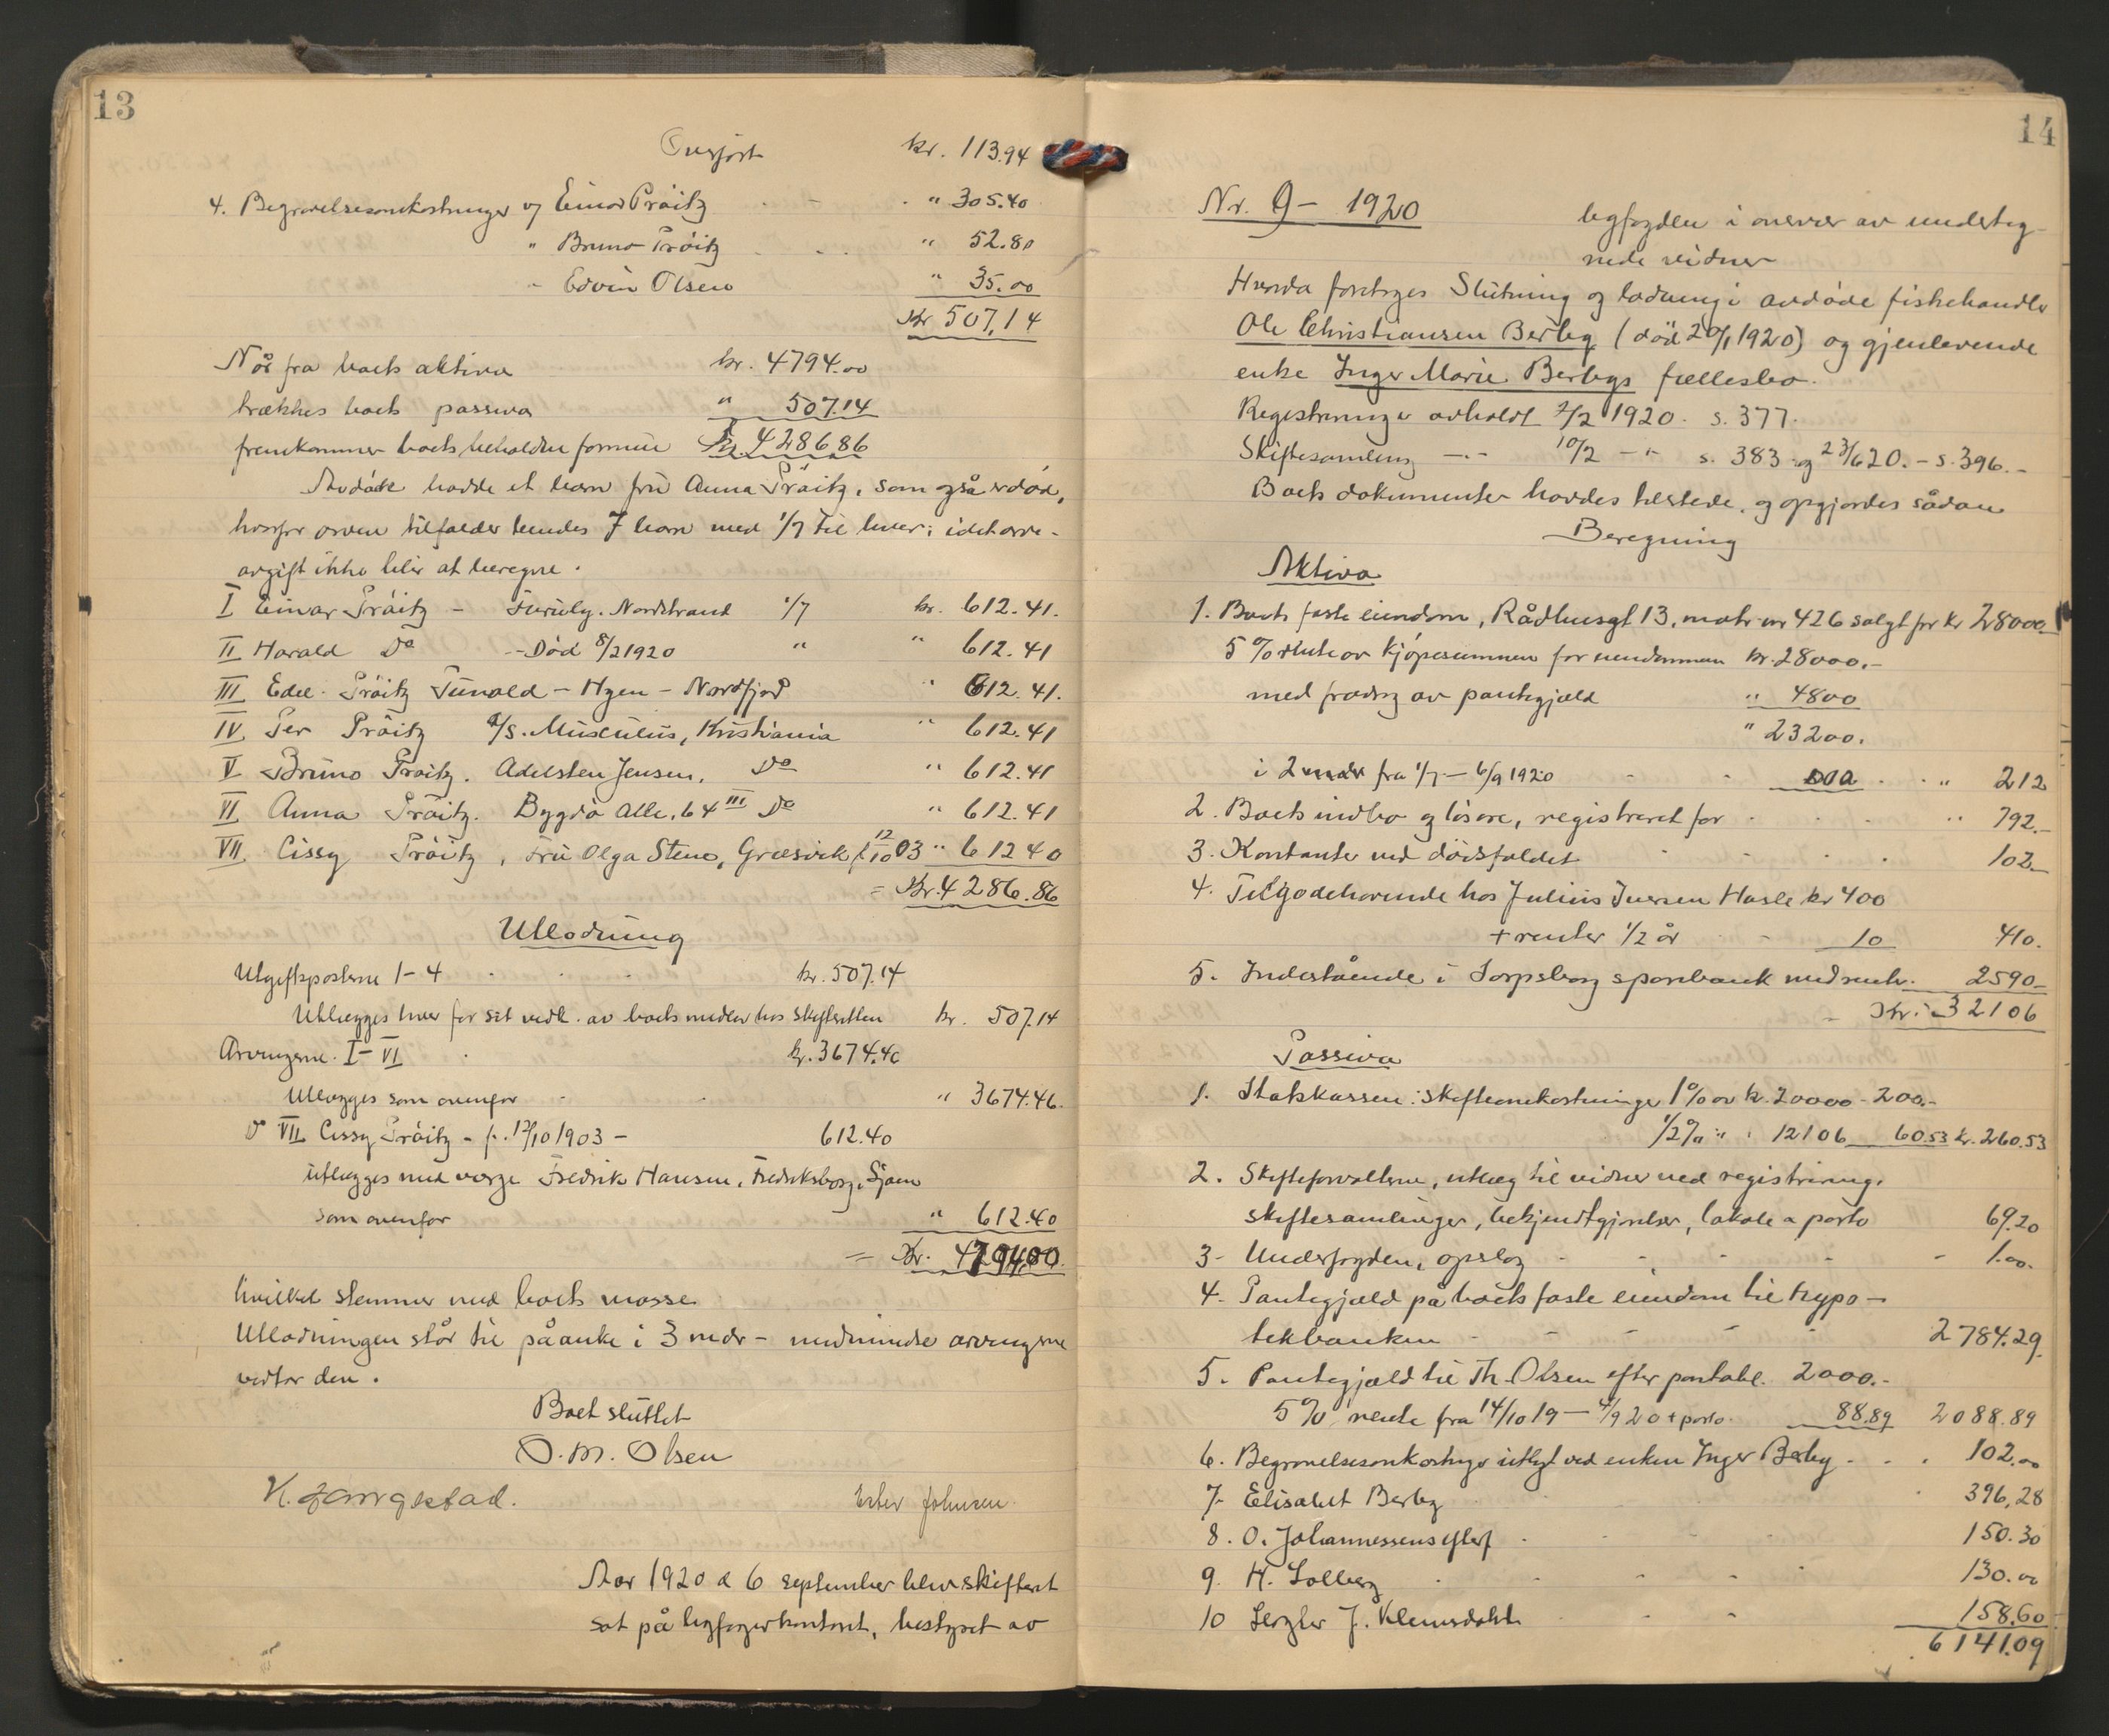 13
Overført kr. 113.94
4. Begravelsesomkostninger v/ Einar Prøitz " 305.40
" Bruno Prøitz " 52.80
" Edvin Olsen " 35.00
Kr 507.14
Når fra boets aktiva kr. 4794.00
trækkes boets passiva " 507.14
fremkommer boets beholdne formue Kr. 4286.86
Avdøde hadde et barn fru Anna Prøitz, som også er død,
hvorfor arven tilfalder hendes 7 barn med 1/7 til hver; idet arve-
avgift ikke blir at beregne.
I Einar Prøitz - Furulg. Nordstrand 1/7 kr. 612.41.
II Harald Do - Død 8/2 1920 " " 612.41
III Edel Prøitz Tunold - Hyen - Nordfjord " 612.41.
IV Per Prøitz A/S. Musculus, Kristiania " 612.41
V Bruno Prøitz. Adelsten Jensen, Do " 612.41
VI Anna Prøitz. Bygdø Alle, 64 III Do " 612.41
VII Cissy Prøitz, Fru Olga Steno, Græsvik f 12/10 03 " 612 40
= Kr. 4286.86
Utlodning
Utgiftsposterne 1-4 kr. 507.14
Utlægges hver for sit vedk. av boets midler hos skifteretten kr. 507.14
Arvingerne I-VI kr. 3674.46
Utlægges som ovenfor " 3674.46.
Do VII Cissy Prøitz - f. 12/10 1903 - 612.40
utlægges med verge Fredrik Hansen, Fredriksborg, Sjøen
som ovenfor " 612.40
= Kr. 4794.00
hvilket stemmer med boets masse
Utlodningen står til påanke i 3 mdr - medmindre arvingerne
vedtar den.
Boet sluttet
O. M. Olsen
K. Langestad. Ester Johnsen.
Aar 1920 d 6 september blev skifteret
sat på bygfogedkontoret, bestyret av
14
Nr. 9 - 1920
bygfogden i overvær av underteg-
nede vidner
Hvorda foretoges Slutning og lodning i avdøde fiskehandler
Ole Christiansen Berbys (død 20/1 1920) og gjenlevende
enke Inger Marie Berbys fællesbo.
Registrering er avholdt 2/2 1920. s. 377.
Skiftesamling -"- 10/2 -"- s. 383 og 23/6 20. - s. 396. -
Boets dokumenter havdes tilstede, og opgjordes sådan
Beregning
Aktiva
1. Boets faste eiendom, Rådhusgt 13, matr. nr 426 solgt for kr 28000.-
5 % rente av kjøpesummen for eiendommen kr. 28000.-
med fradrag av pantegjæld " 4800
" 23200.
i 2 mndr fra 1/7 - 6/9 1920 " 212
2. Boets indbo og løsøre, registreret for " 792.-
3. Kontanter ved dødsfaldet 102.-
4. Tilgodehavende hos Julius Iversen Hasle kr 400
+ renter 1/2 år 10 410.
5. Indestående i Sarpsborg sparebank med rente. 2590.-
Kr. 32106
Passiva
1. Statskassen: skifteomkostninger 1 % av kr. 20000 - 200.-
1/2 % " " 12106 60.53 kr. 260.53
2. Skifteforvalteren, utlæg til vidner ved registrering,
skiftesamlinger, bekjendtgjørelser, lokale & porto 69.20
3. Underfogden, opslag - 1.00.
4. Pantegjæld på boets faste eiendom til hypo-
tekbanken 2784.29.
5. Pantegjæld til Th. Olsen efter pantobl. 2000.-
5 % rente fra 14/10 19 - 4/9 20 + porto 88.89 2088.89
6. Begravelsesomkostnger utlagt ved enken Inger Berby 102.00
7. Elisabet Berby 396,28
8. O. Johannessens efterf 150.30
9. H. Solberg 130.00
10 J. Klemsdahl 158.60
6141.09